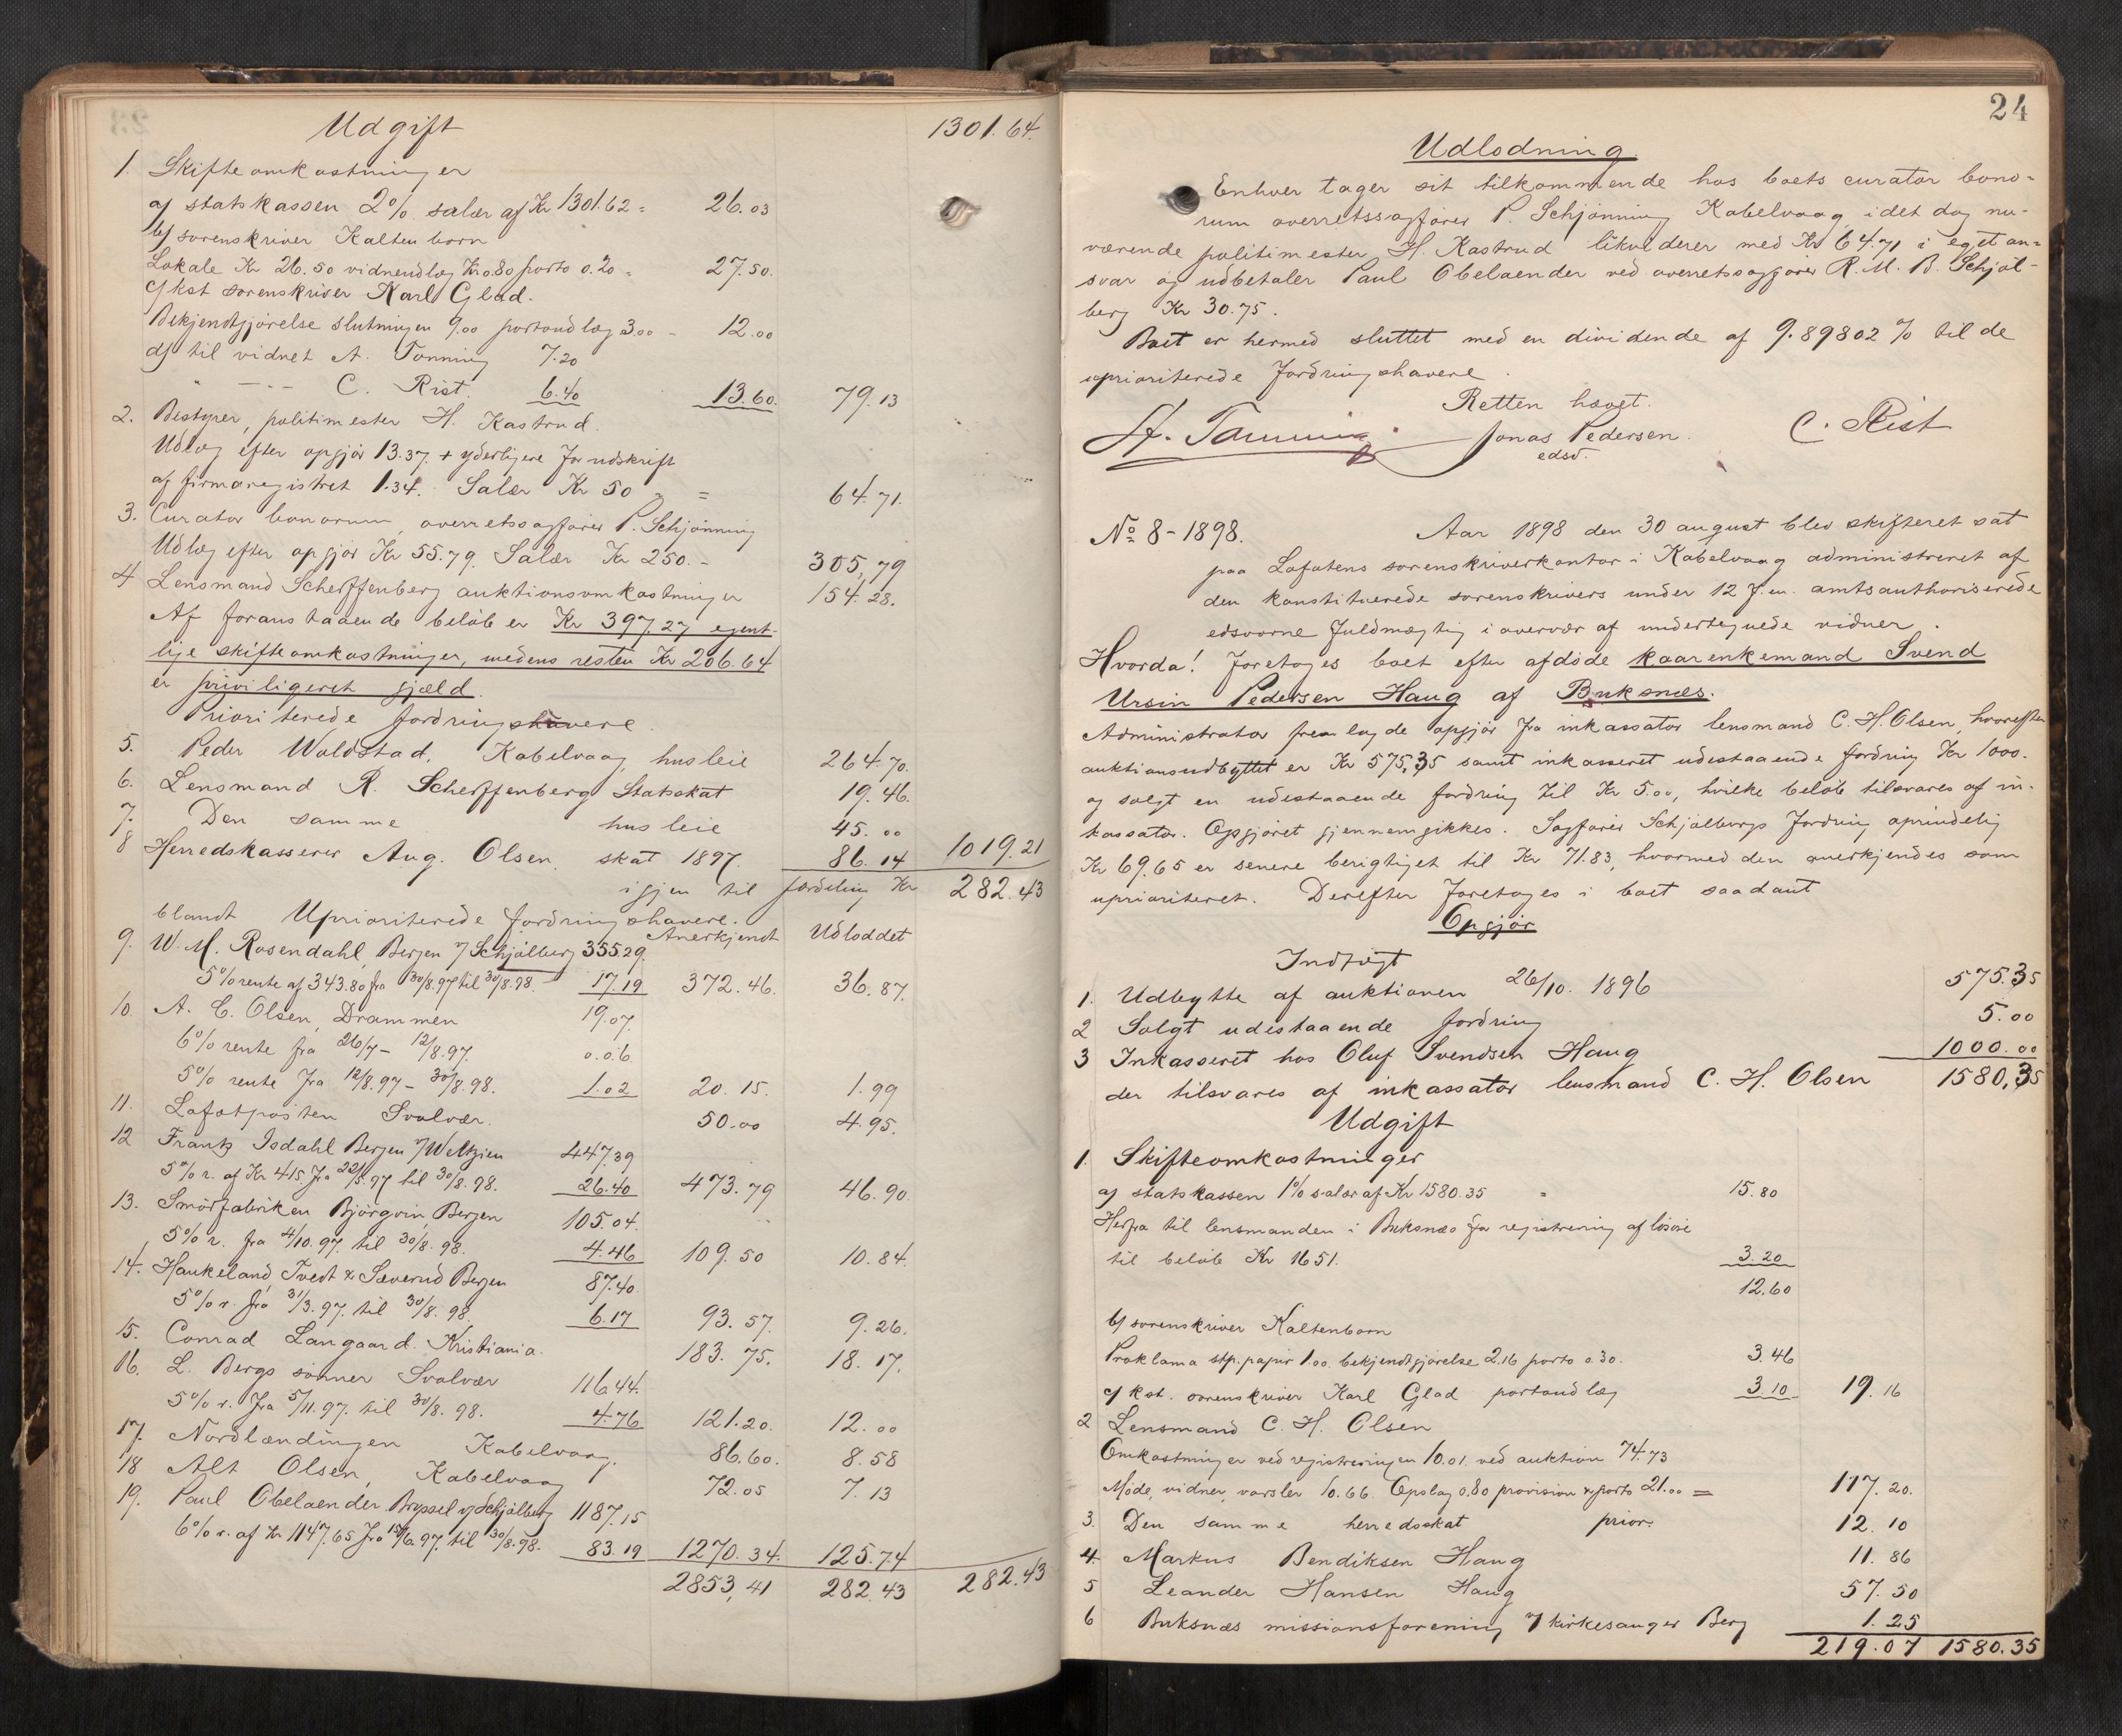 Udgift 1301.64.
1. Skifteomkostninger
a) statskassen 2% salær af Kr 1301.62 = 26.03
b) sorenskriver Kaltenborn
Lokale Kr 26.50 vidneudlæg Kr 0.80 porto 0.20 = 27.50.
c) kst sorenskriver Karl Glad.
Bekjendtgjørelse slutningen 9.00 portoudlæg 3.00 - 12.00
d) til vidnet A. Tønning 7.20
" — - - C. Rist. 6.40 13.60. 79.13
2. Bestyrer, politimester H. Kastrud.
Udlæg efter opgjør 13.37. + yderligere for udskrift
af firmaregistret 1.34. Salær Kr 50 " = 64.71.
3. Curator bonorum, overretssagfører P. Schjønning
Udlæg efter opgjør Kr 55.79. Salær Kr 250.- 305,79
4 Lensmand Scherffenberg auktionsomkostninger 154.28.
Af foranstaaende beløb er Kr 397.27 egent-
lige skifteomkostninger, medens resten Kr 206.64
er priviligeret gjæld.
Prioriterede fordringshavere.
5. Peder Woldstad, Kabelvaag, husleie 264.70.
6. Lensmand R. Scherffenberg Statsskat 19.46.
7. Den samme husleie 45.00
8 Herredskasserer Aug. Olsen. skat 1897. 86.14 1019.21
igjen til fordeling Kr 282.43
blandt Uprioriterede fordringshavere. Anerkjendt Udloddet
9. W. M. Rosendahl, Bergen v/ Schjølberg 355.29.
5% rente af 343.80 fra 30/8.97 til 30/8.98. 17.19 372.46. 36.87.
10. A. C. Olsen, Drammen 19.07.
6% rente fra 26/7 - 12/8.97. 0.06.
5% rente fra 12/8.97 - 30/8.98. 1.02 20.15. 1.99
11. Lofotposten Svolvær. 50.00 4.95.
12 Frantz Isdahl Bergen v/ Weltzien 447.39
5% r. af Kr 415 fra 22/5.97 til 30/8.98. 26.40 473.79 46.90.
13. Smørfabriken Bjørgvin, Bergen 105.04.
5% r. fra 4/10.97. til 30/8.98. 4.46 109.50 10.84.
14. Haukeland, Tvedt & Sæverud Bergen 87.40.
5% r. fra 31/3.97. til 30/8.98. 6.17 93.57. 9.26.
15. Conrad Langaard. Kristiania. 183.75. 18.17.
16. L. Bergs sønner Svolvær 116.44.
5% r. fra 5/11.97. til 30/8.98. 4.76 121.20. 12.00
17. Nordlændingen Kabelvaag. 86.60. 8.58
18 Alt Olsen, Kabelvaag 72.05 7.13
19. Paul Obelaender Bryssel v/ Schjølberg 1187.15
6% r. af Kr 1147.65 fra 15/6.97. til 30/8.98. 83.19 1270.34. 125.74
2853,41 282.43 282.43
24
Udlodning.
Enhver tager sit tilkommende hos boets curator bono=
rum overretssagfører P. Schjønning Kabelvaag, idet dog nu-
værende politimester H. Kastrud likviderer med Kr 64.71 i eget an=
svar og udbetaler Paul Obelaender ved overretssagfører R. M. B. Schjøl-
berg Kr 30.75.
Boet er hermed sluttet med en dividende af 9.89802 % til de
uprioriterede fordringshavere.
Retten hævet.
A. Tønning. Jonas Pedersen. C. Rist
edsv.
No 8-1898. Aar 1898 den 30 august blev skifteret sat
paa Lofotens sorenskriverkontor i Kabelvaag administreret af
den konstituerede sorenskrivers under 12 f. m. amtsauthoriserede
edsvorne fuldmægtig i overvær af undertegnede vidner.
Hvorda! foretoges boet efter afdøde kaarenkemand Svend
Ursin Pedersen Haug af Buksnæs.
Administrator fremlagde opgjør fra inkassator lensmand C. H. Olsen, hvorefter
auktionsudbyttet er Kr 575,35 samt inkasseret udestaaende fordring Kr 1000.
og solgt en udestaaende fordring til Kr 5.00, hvilke beløb tilsvares af in-
kassator. Opgjøret gjennemgikkes. Sagfører Schjølbergs fordring oprindelig
Kr 69.65 er senere berigtiget til Kr 71.83, hvormed den anerkjendes som
uprioriteret. Derefter foretoges i boet saadant
Opgjør
Indtægt
1. Udbytte af auktionen 26/10. 1896 575.35
2 Solgt udestaaende fordring 5.00
3 Inkasseret hos Oluf Svendsen Haug 1000.00
der tilsvares af inkassator lensmand C. H. Olsen 1580,35
Udgift
1. Skifteomkostninger
a) statskassen 1% salær af Kr 1580.35 = 15.80
Herfra til lensmanden i Buksnæs for registrering af løsøre
til beløb Kr 1651. 3.20
12.60
b) sorenskriver Kaltenborn
Proklama stp. papir 1.00. bekjendtgjørelse 2.16 porto 0.30. 3.46
c) kst. sorenskriver Karl Glad portoudlæg 3.10 19.16
2 Lensmand C. H. Olsen
Omkostninger ved registreringen 10.01. ved auktion 74.73
Møde, vidner, varsler 10.66. Opslag 0.80 provision & porto 21.00 = 117.20.
3. Den samme herredsskat prior. 12.10
4. Markus Bendiksen Haug 11.86
5 Leander Hansen Haug 57.50
6 Buksnæs missionsforening v/ kirkesanger Berg 1.25
219.07 1580.35